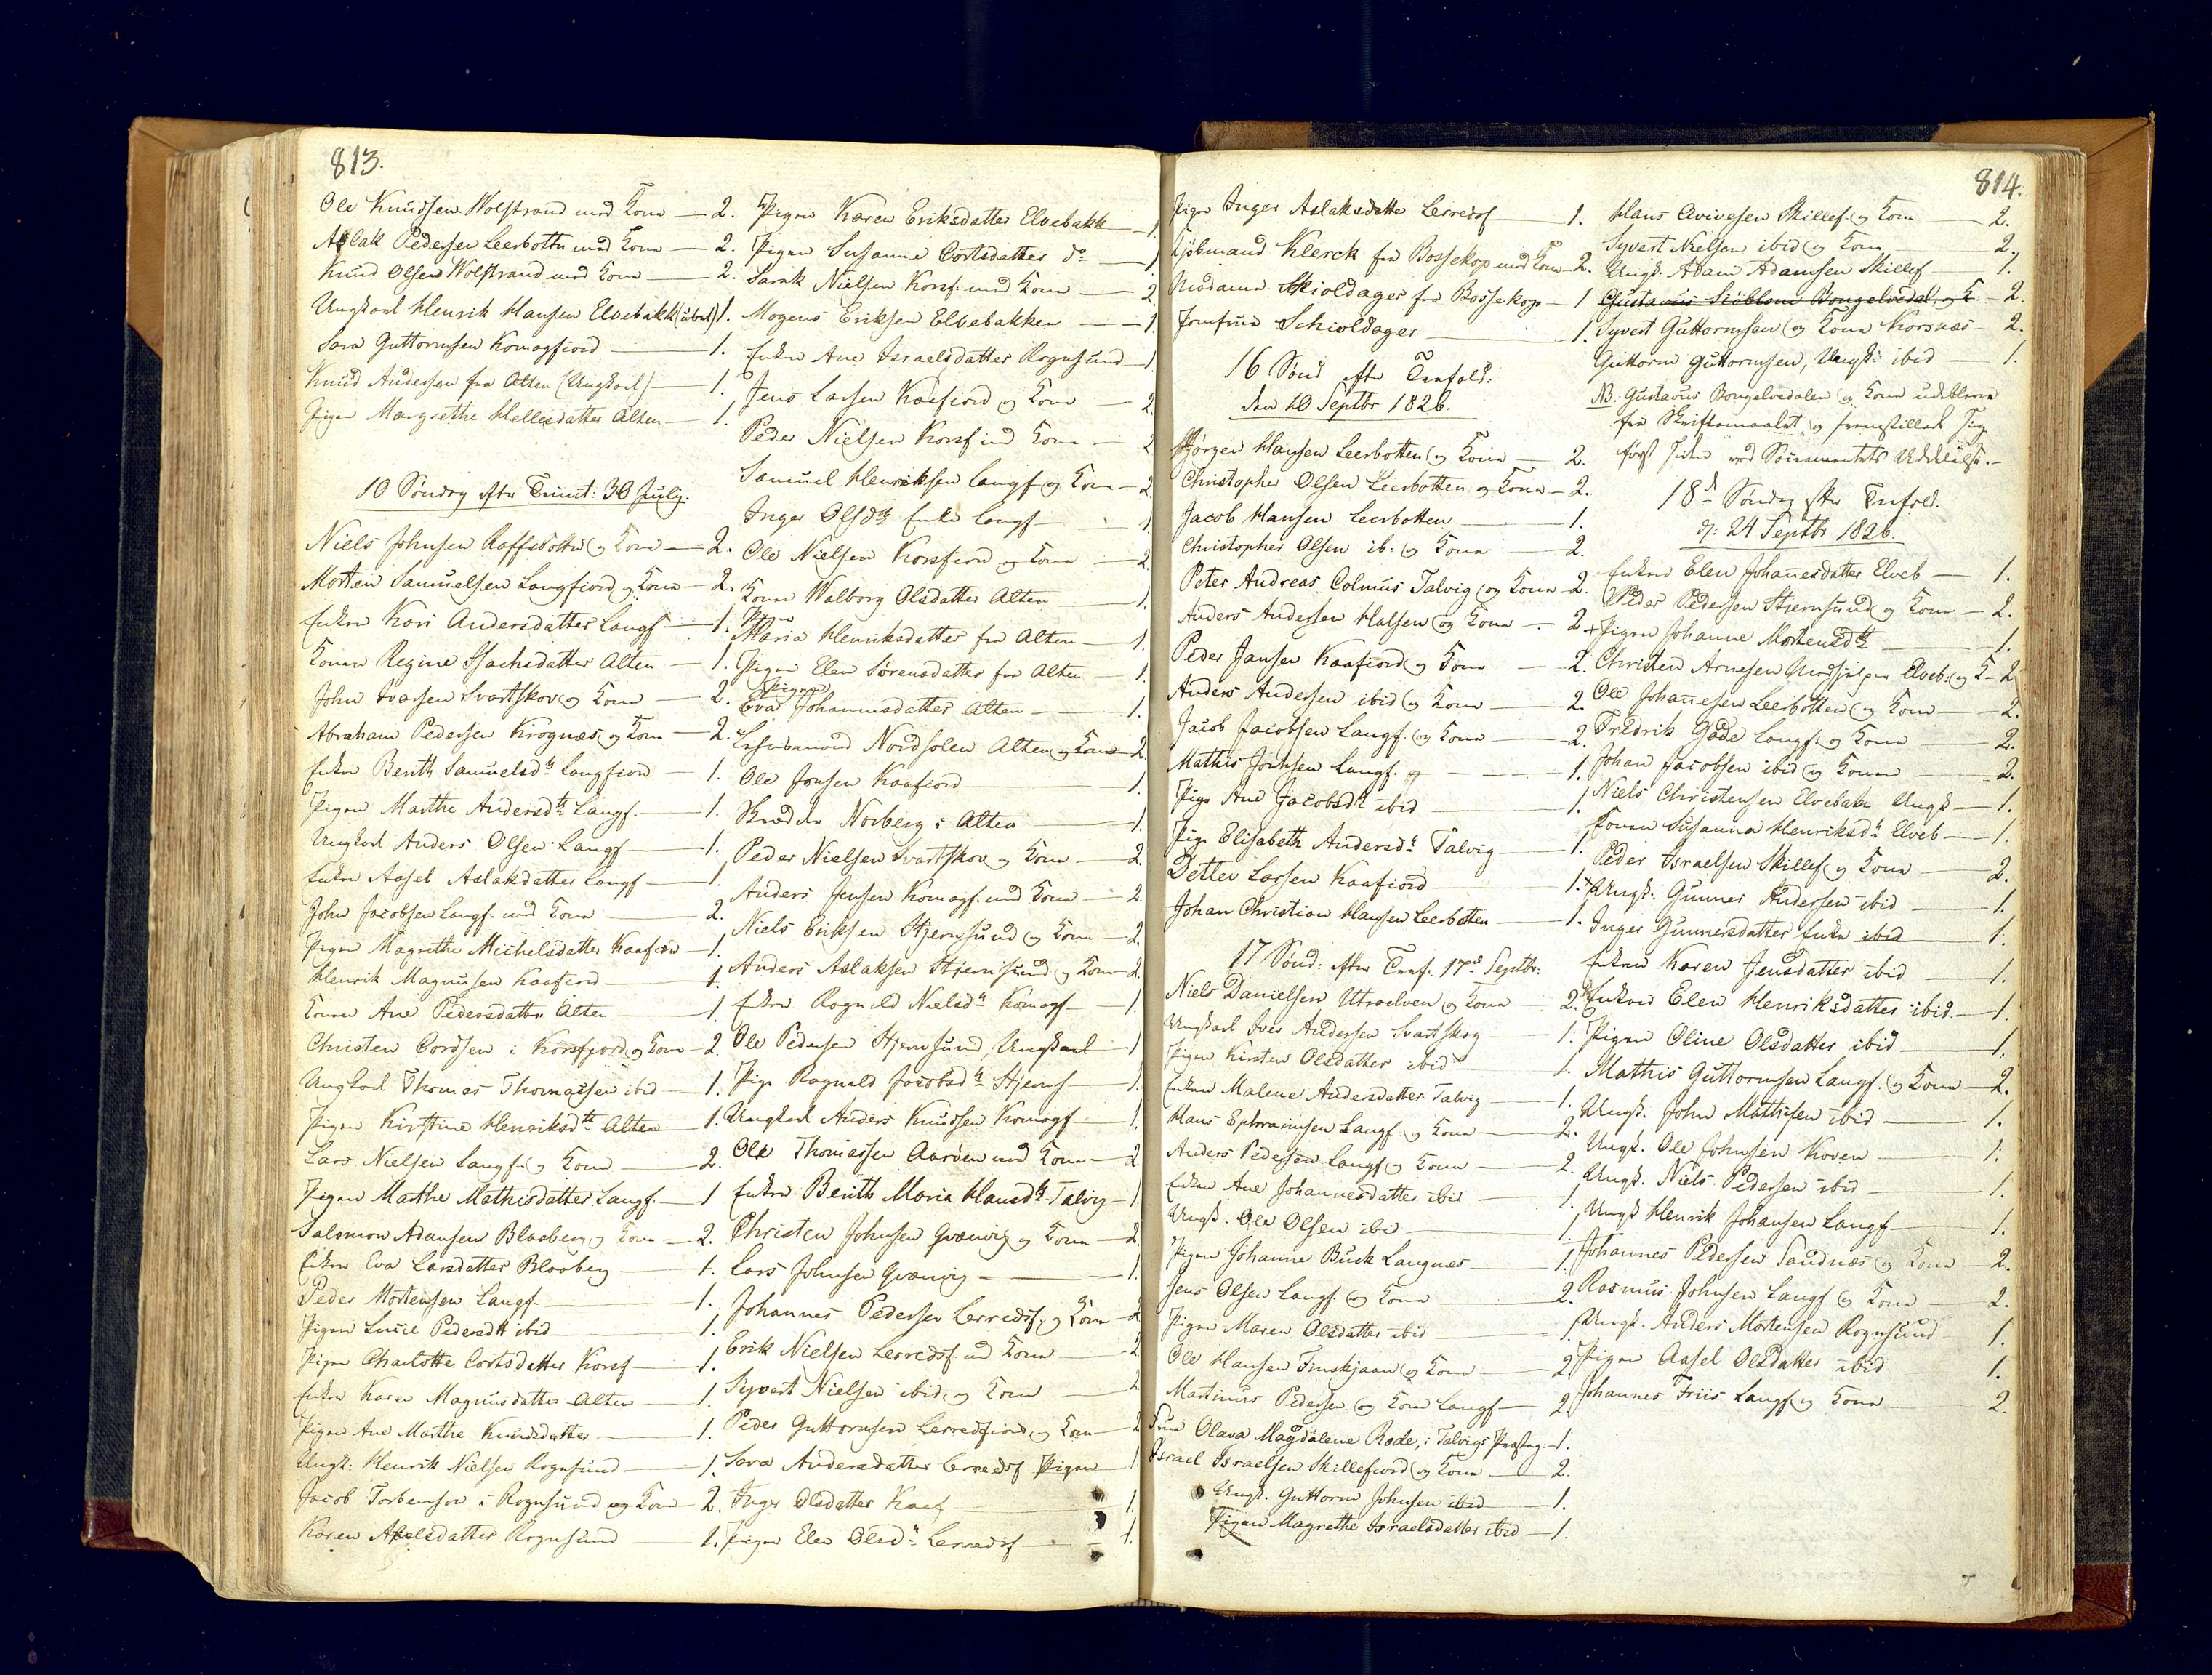 813.
Ole Knudsen Wolstrand med Kone — 2.
Aslak Pedersen Leerbotten med Kone — 2.
Knud Olsen Wolstrand med Kone — 2.
Ungkarl Henrik Hansen Elvebakk — 1.
Sara Guttormsen Komagfiord — 1.
Knud Andersen fra Alten (Ungkarl) — 1.
Pigen Margrethe Hellesdatter Alten — 1.
10 Søndag efter Trinit: 30 July.
Niels Johnsen Raffsbotten og Kone — 2.
Morten Samuelsen Langfiord og Kone — 2.
Enken Kari Andersdatter Langf — 1.
Konen Regine Isachsdatter Alten — 1.
John Ivarsen Svartskov og Kone — 2.
Abraham Pedersen Krognæs og Kone — 2.
Enken Berith Samuelsdtr Langfiord — 1.
Pigen Marthe Andersdtr Langf. — 1.
Ungkarl Anders Olsen Langf — 1.
Enken Aasel Aslakdatter Langf — 1.
John Jacobsen Langf. med Kone — 2.
Pigen Magrethe Michelsdatter Kaafiord — 1.
Henrik Magnusen Kaafiord — 1.
Konen Ane Pedersdatter Alten — 1.
Christen Cordsen i Korsfjord og Kone — 2.
Ungkarl Thomas Thomassen ibid — 1.
Pigen Kirstine Henriksdtr Alten — 1.
Lars Nielsen Langf. og Kone — 2.
Pigen Marthe Mathisdatter Langf. — 1
Salomon Adamsen Blaaberg og Kone — 2.
Enken Eva Larsdatter Blaaberg — 1.
Peder Mortensen Langf. — 1.
Pigen Lucie Pedersdtr ibid — 1.
Pigen Charlotte Cortsdatter Korsf — 1.
Enken Karen Magnusdatter Alten — 1.
Pigen Ane Marthe Knudsdatter — 1.
Ungk: Henrik Nielsen Rognsund — 1.
Jacob Torbensen i Rognsund og Kone — 2.
Karen Axelsdatter Rognsund — 1.
Pigen Karen Eriksdatter Elvebakk — 1
Pigen Susanne Cortsdatter do — 1
Sarak Nielsen Korsf. med Kone — 2
Mogens Eriksen Elvebakken — 1.
Enken Ane Israelsdatter Rognsund — 1.
Jens Larsen Kaafiord og Kone — 2.
Peder Nielsen Korsf med Kone — 2
Samuel Henriksen Langf og Kone — 2
Inger Olsdtr Enke Langf — 1
Ole Nielsen Korsfiord og Kone — 2
Konen Walborg Olsdatter Alten — 1.
Pigen
Maria Henriksdatter fra Alten — 1.
Pigen Elen Sørensdatter fra Alten — 1
Pigen
Eva Johannesdatter Alten — 1.
Nordsolen Alten og Kone — 2
Ole Jonsen Kaafiord — 1.
Norberg i Alten — 1.
Peder Nielsen Svartskov og Kone — 2.
Anders Jensen Komagf. med Kone — 2.
Niels Eriksen Stjernsund og Kone — 2.
Anders Aslaksen Stjernsund og Kone — 2
Enken Ragnild Nielsdtr Komagf — 1.
Ole Pedersen Stjernsund, Ungkarl — 1
Pige Ragnild Jacobsdtr Stjernsf — 1.
Ungkarl Anders Knudsen Komagf — 1.
Ole Thomassen Aarøen med Kone — 2
Enken Berith Maria Hansdtr Talvig — 1.
Christen Johnsen Qvænvig og Kone — 2.
Lars Johnsen Qvænvig — 1.
Johannes Pedersen Lerredsf. og Kone — 2
Erik Nielsen Lerredsf. med Kone — 2
Syvert Nielsen ibid. og Kone — 2
Peder Guttormsen Lerredsfiord og Kone — 2
Sara Andersdatter Lerredsf Pigen — 1
Inger Olsdatter Kaaf — 1.
Pigen Elen Olsdtr Lerredsf — 1.
814.
Pigen Inger Aslaksdatter Lerredsf — 1.
Kjøbmand Klerck fra Bossekop med Kone — 2.
Madame Skioldager fra Bossekop — 1
Jomfrue Schioldager — 1.
16 Sønd efter Trefold:
den 10 Septbr 1826.
Jørgen Hansen Leerbotten og Kone — 2.
Christopher Olsen Leerbotten og Kone — 2.
Jacob Hansen Leerbotten — 1.
Christopher Olsen ib: og Kone — 2.
Peter Andreas Colmus Talvig og Kone — 2.
Anders Andersen Halsen og Kone — 2
Peder Jansen Kaafiord og Kone — 2.
Anders Andersen ibid og Kone — 2.
Jacob Jacobsen Langf. og Kone — 2.
Mathis Jochsen Langf. og — 1.
Pige Ane Jacobsdtr ibid — 1.
Pige Elisabeth Andersdtr Talvig — 1.
Detlev Larsen Kaafiord — 1.
Johan Christian Hansen Leerbotten — 1.
17 Sønd: efter Tref. 17d Septbr.
Niels Danielsen Utvælven og Kone — 2.
Ungkarl Iver Andersen Svartskog — 1.
Pigen Kirsten Olsdatter ibid — 1.
Enken Malene Andersdatter Talvig — 1.
Hans Ephraimsen Langf. og Kone — 2.
Anders Pedersen Langf og Kone — 2.
Enken Ane Johannesdatter ibid — 1.
Ungk. Ole Olsen ibid — 1.
Pigen Johanne Buck Langnæs — 1.
Jens Olsen Langf og Kone — 2.
Pigen Maren Olsdatter ibid — 1.
Ole Hansen Finskjaan og Kone — 2
Martinus Pedersen og Kone Langf — 2
Frue Olava Magdalene Rode, i Talvigs Præsteg: — 1.
Israel Israelsen Skillefiord og Kone — 2.
Ungk. Guttorm Johnsen ibid — 1.
Pigen Magrethe Israelsdatter ibid — 1.
Hans Evivesen Skillef og Kone — 2.
Syvert Nielsen ibid og Kone — 2.
Ungk. Adam Adamsen Skillef — 1.
Gustavus Siøblom Bongelvedal, og K. — 2.
Syvert Guttormsen og Kone Korsnæs — 2.
Guttorm Guttormsen, Ungk: ibid — 1.
NB. Gustavus Bongelvedalen og Kone udebleve
fra Skriftemaalet, og fremstillede sig
først siden ved Sacramentets Uddelelse.
18d Søndag efter Trefold.
d: 24 Septbr 1826.
Enken Elen Johannesdatter Elveb — 1.
Peder Pedersen Stjernsund og Kone — 2.
+ Pigen Johanne Mortensdtr — 1.
Christen Arnesen Elveb: og K — 2
Ole Johannesen Leerbotten og Kone — 2.
Fredrik Gade Langf. og Kone — 2.
Johan Jacobsen ibid og Kone — 2.
Niels Christensen Elvebakk Ungk — 1.
Konen Susanna Henriksdtr Elveb — 1.
Peder Israelsen Skillef og Kone — 2.
Ungk: Gunner Andersen ibid — 1.
Inger Gunnersdatter Enke ibid — 1.
Enken Karen Jensdatter ibid — 1.
Enken Elen Henriksdatter ibid — 1.
Pigen Oline Olsdatter ibid — 1.
Mathis Guttormsen Langf. og Kone — 2.
Ungk. John Mathisen ibid — 1.
Ungk. Ole Johnsen Koven — 1.
Ungk. Niels Pedersen ibid — 1.
Ungk Henrik Johansen Langf — 1.
Johannes Pedersen Sandnæs og Kone — 2.
Rasmus Johnsen Langf og Kone — 2.
Ungk. Anders Mortensen Rognsund — 1.
Pigen Aasel Olsdatter ibid — 1.
Johannes Friis Langf og Kone — 2.